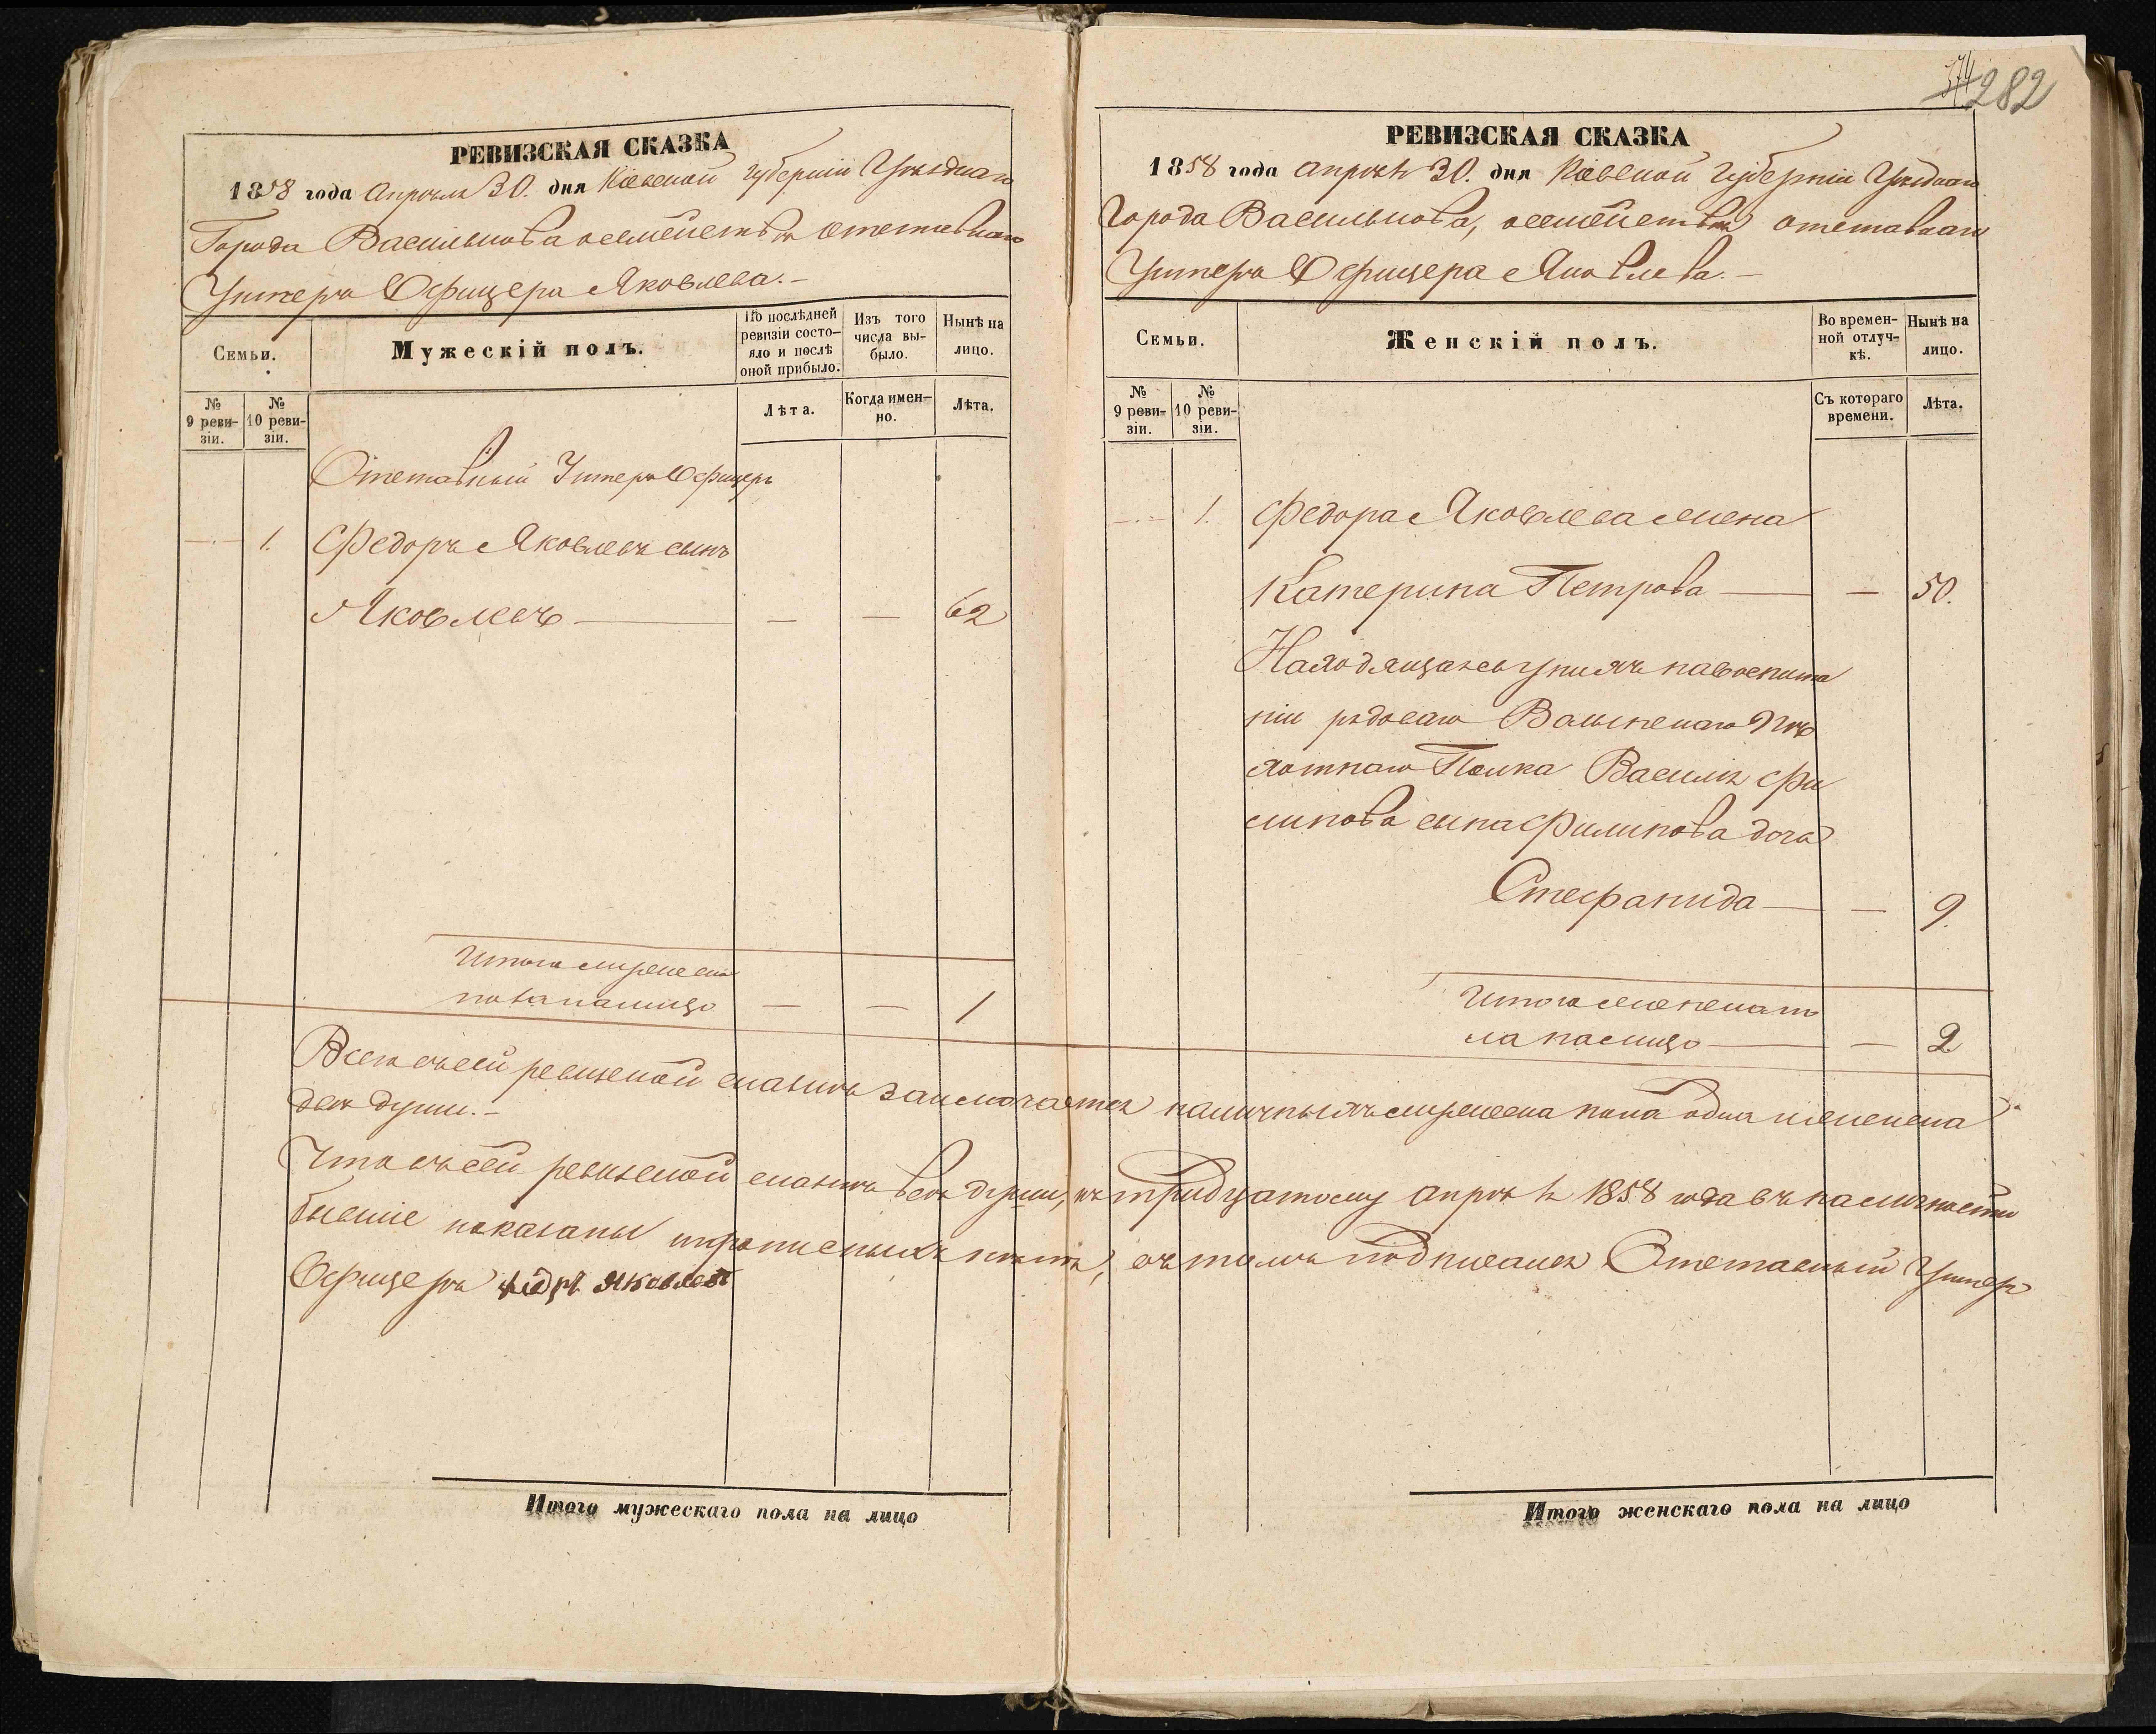 РЕВИЗСКАЯ СКАЗКА
1858 года Апрѣля 30. дня Кіевской губерніи Уѣзднаго
Города Василькова о семействѣ отставнаго
Унтеръ Офицера Яковлева.-
Семьи.
Мужескій полъ.
По послѣдней ревизіи состо-
яло и послѣ оной прибыло.
Изъ того числа вы-
было.
Нынѣ на лицо.
№ 9 реви-
зіи.
№ 10 реви-
зіи.
Лѣта.
Когда имен-
но.
Лѣта.
Отставный Унтеръ Офицеръ
— 1. Федоръ Яковлевъ сынъ
Яковлевъ — — — 62
Итого мужеска
пола на лицо — — 1
РЕВИЗСКАЯ СКАЗКА
374 282
1858 года Апрѣля 30. дня Кіевской Губерніи Уѣзднаго
Города Василькова, о семействѣ отставнаго
Унтеръ Офицера Яковлева.-
Семьи.
Женскій полъ.
Во времен-
ной отлуч-
кѣ.
Нынѣ на лицо.
№ 9 реви-
зіи.
№ 10 реви-
зіи.
Съ котораго времени.
Лѣта.
— 1. Федора Яковлева жена
Катерина Петрова — — 50.
Находящаясь у нихъ на воспита
ніи рядоваго Волынскаго Пѣ
хотнаго Полка Василія Фи
липова сына Филипова дочь
Стефанида — — 9.
Итого женскаго
на лицо — — 2
Всего въ сей ревизской сказкѣ заключается наличныхъ мужеска пола одна и женска
двѣ души.-
Что въ сей ревизской сказкѣ всѣ души, къ тридцатому Апрѣля 1858 года въ наличности
бывшіе показаны и прописныхъ нѣтъ, въ томъ подписался Отставный Унтеръ
Офицеръ Федръ Яковлевъ
Итого мужескаго пола на лицо
Итого женскаго пола на лицо